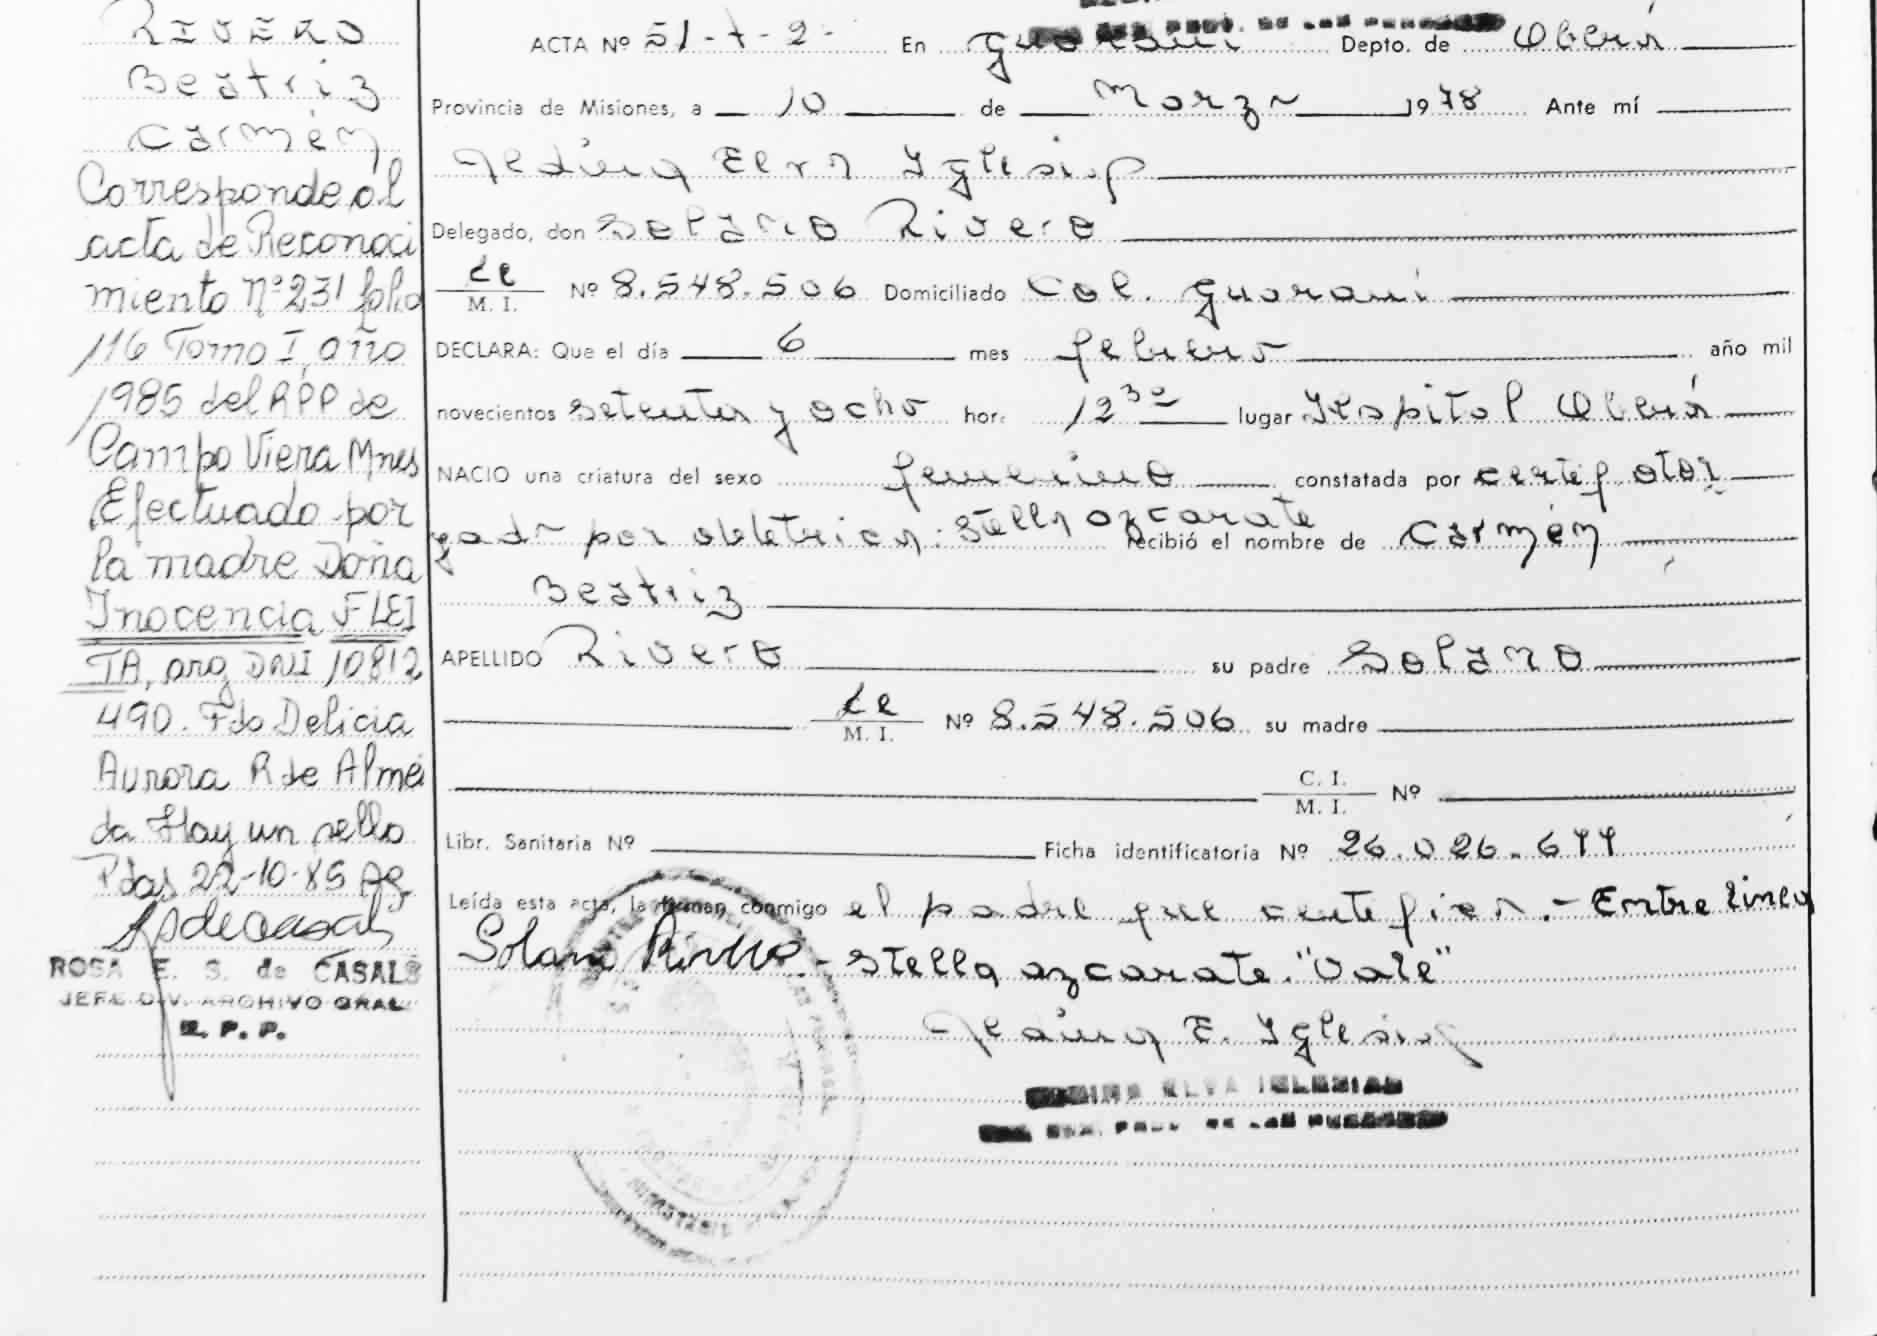 RIVERO
Beatriz
Carmén
Corresponde al
acta de Reconoci
miento Nº 231 folio
116 Tomo I, año
1985 del RPP de
Campo Viera Mnes
Efectuado por
la madre Doña
Inocencia FLEI
TA, arg DNI 10812
490. Fdo Delicia
Aurora R de Almei
da Hay un sello
Pdas 22-10-85
ROSA E. S. de CASALS
JEFE DIV. ARCHIVO GRAL.
R. P. P.
ACTA Nº 51-t-2- En Guarani Depto. de Oberá
Provincia de Misiones, a 10 de Marzo 1978 Ante mí
Elva Iglesias
Delegado, don Solano Rivero
LE M. I. Nº 8.548.506 Domiciliado Col. Guarani
DECLARA: Que el día 6 mes febrero año mil
novecientos setenta y ocho hora 12 30 lugar Hospital Oberá
NACIO una criatura del sexo femenino constatada por certif. otor
gado por obstetrica: Stella azcarate recibió el nombre de Carmén
Beatriz
APELLIDO Rivero su padre Solano
LE M. I. Nº 8.548.506 su madre
C. I. M. I. Nº
Libr. Sanitaria Nº Ficha identificatoria Nº 26.026.644
Leída esta acta, la firman conmigo el padre que certifico.- Entre linea
Solano Rivero - Stella azcarate. "Vale"
E. Iglesias
ELVA IGLESIAS
DE LAS PERSONAS